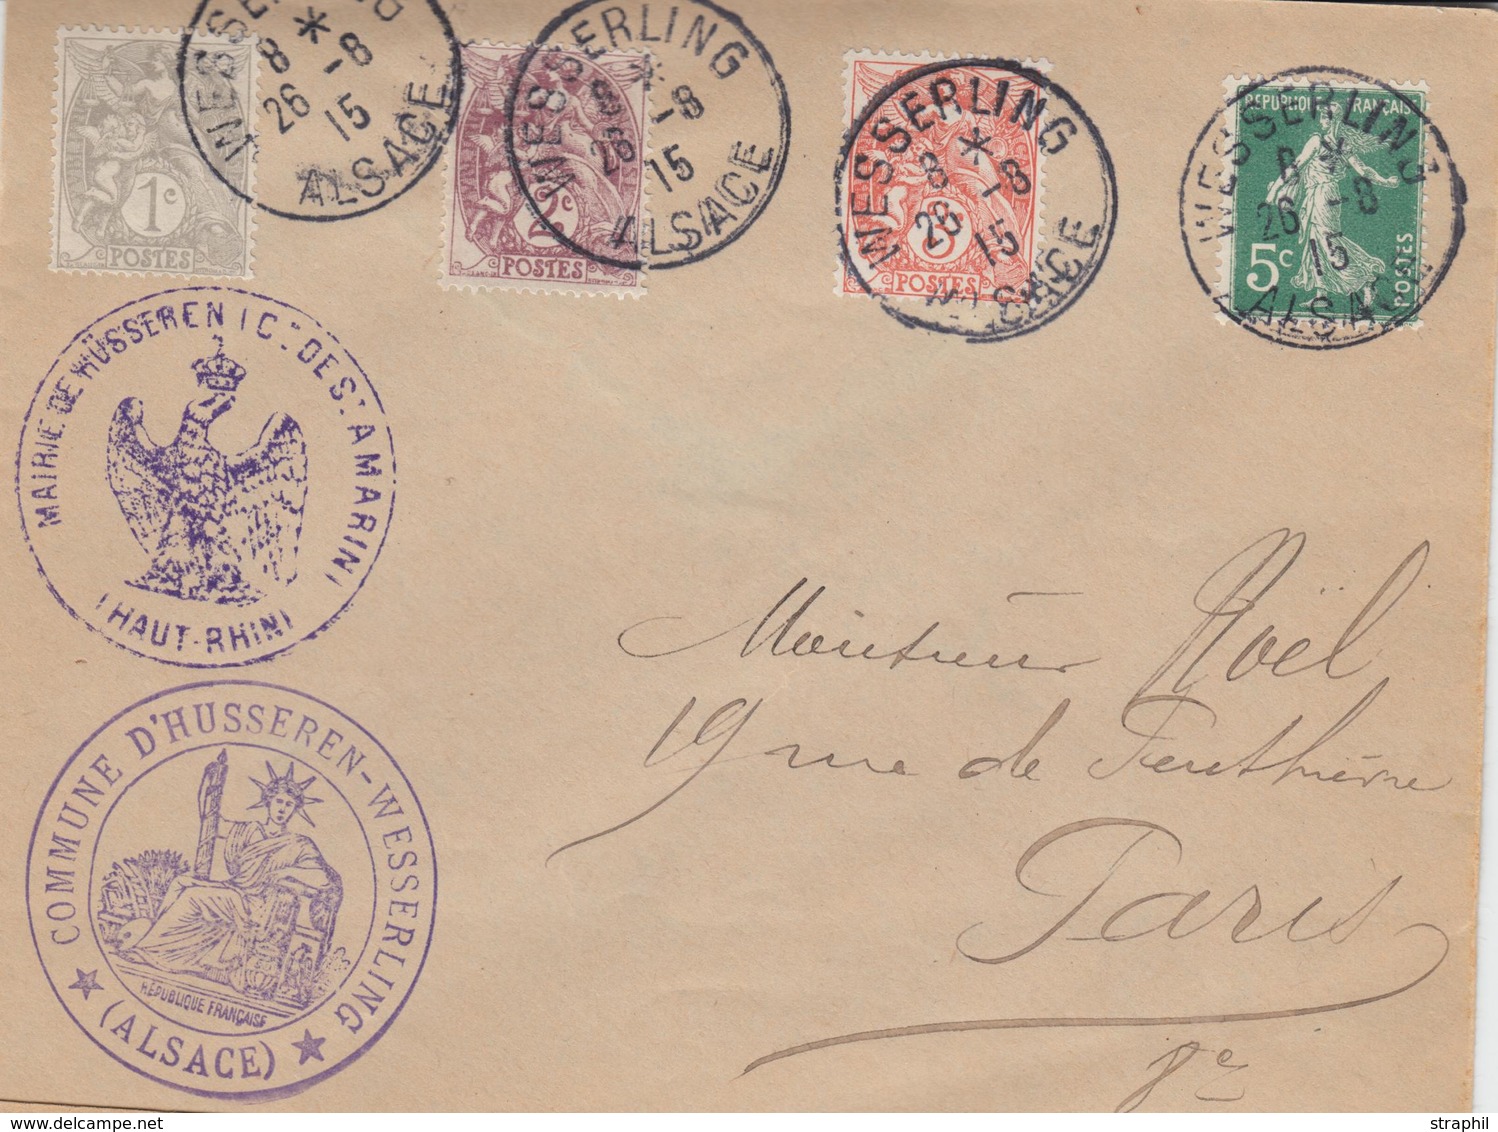 1c
POSTES
WESSERLING
*
8 -8
26 15
ALSACE
2c
POSTES
WESSERLING
*
8 -8
26 15
ALSACE
3c
POSTES
WESSERLING
*
8 -8
26 15
ALSACE
REPUBLIQUE FRANÇAISE
5c
POSTES
WESSERLING
*
8 -8
26 15
ALSACE
MAIRIE DE HUSSEREN (Con DE ST AMARIN)
(HAUT-RHIN)
COMMUNE D'HUSSEREN-WESSERLING
(ALSACE)
RÉPUBLIQUE FRANÇAISE
Monsieur Noël
19 rue de Penthièvre
Paris
8e
www.delcampe.net
straphil